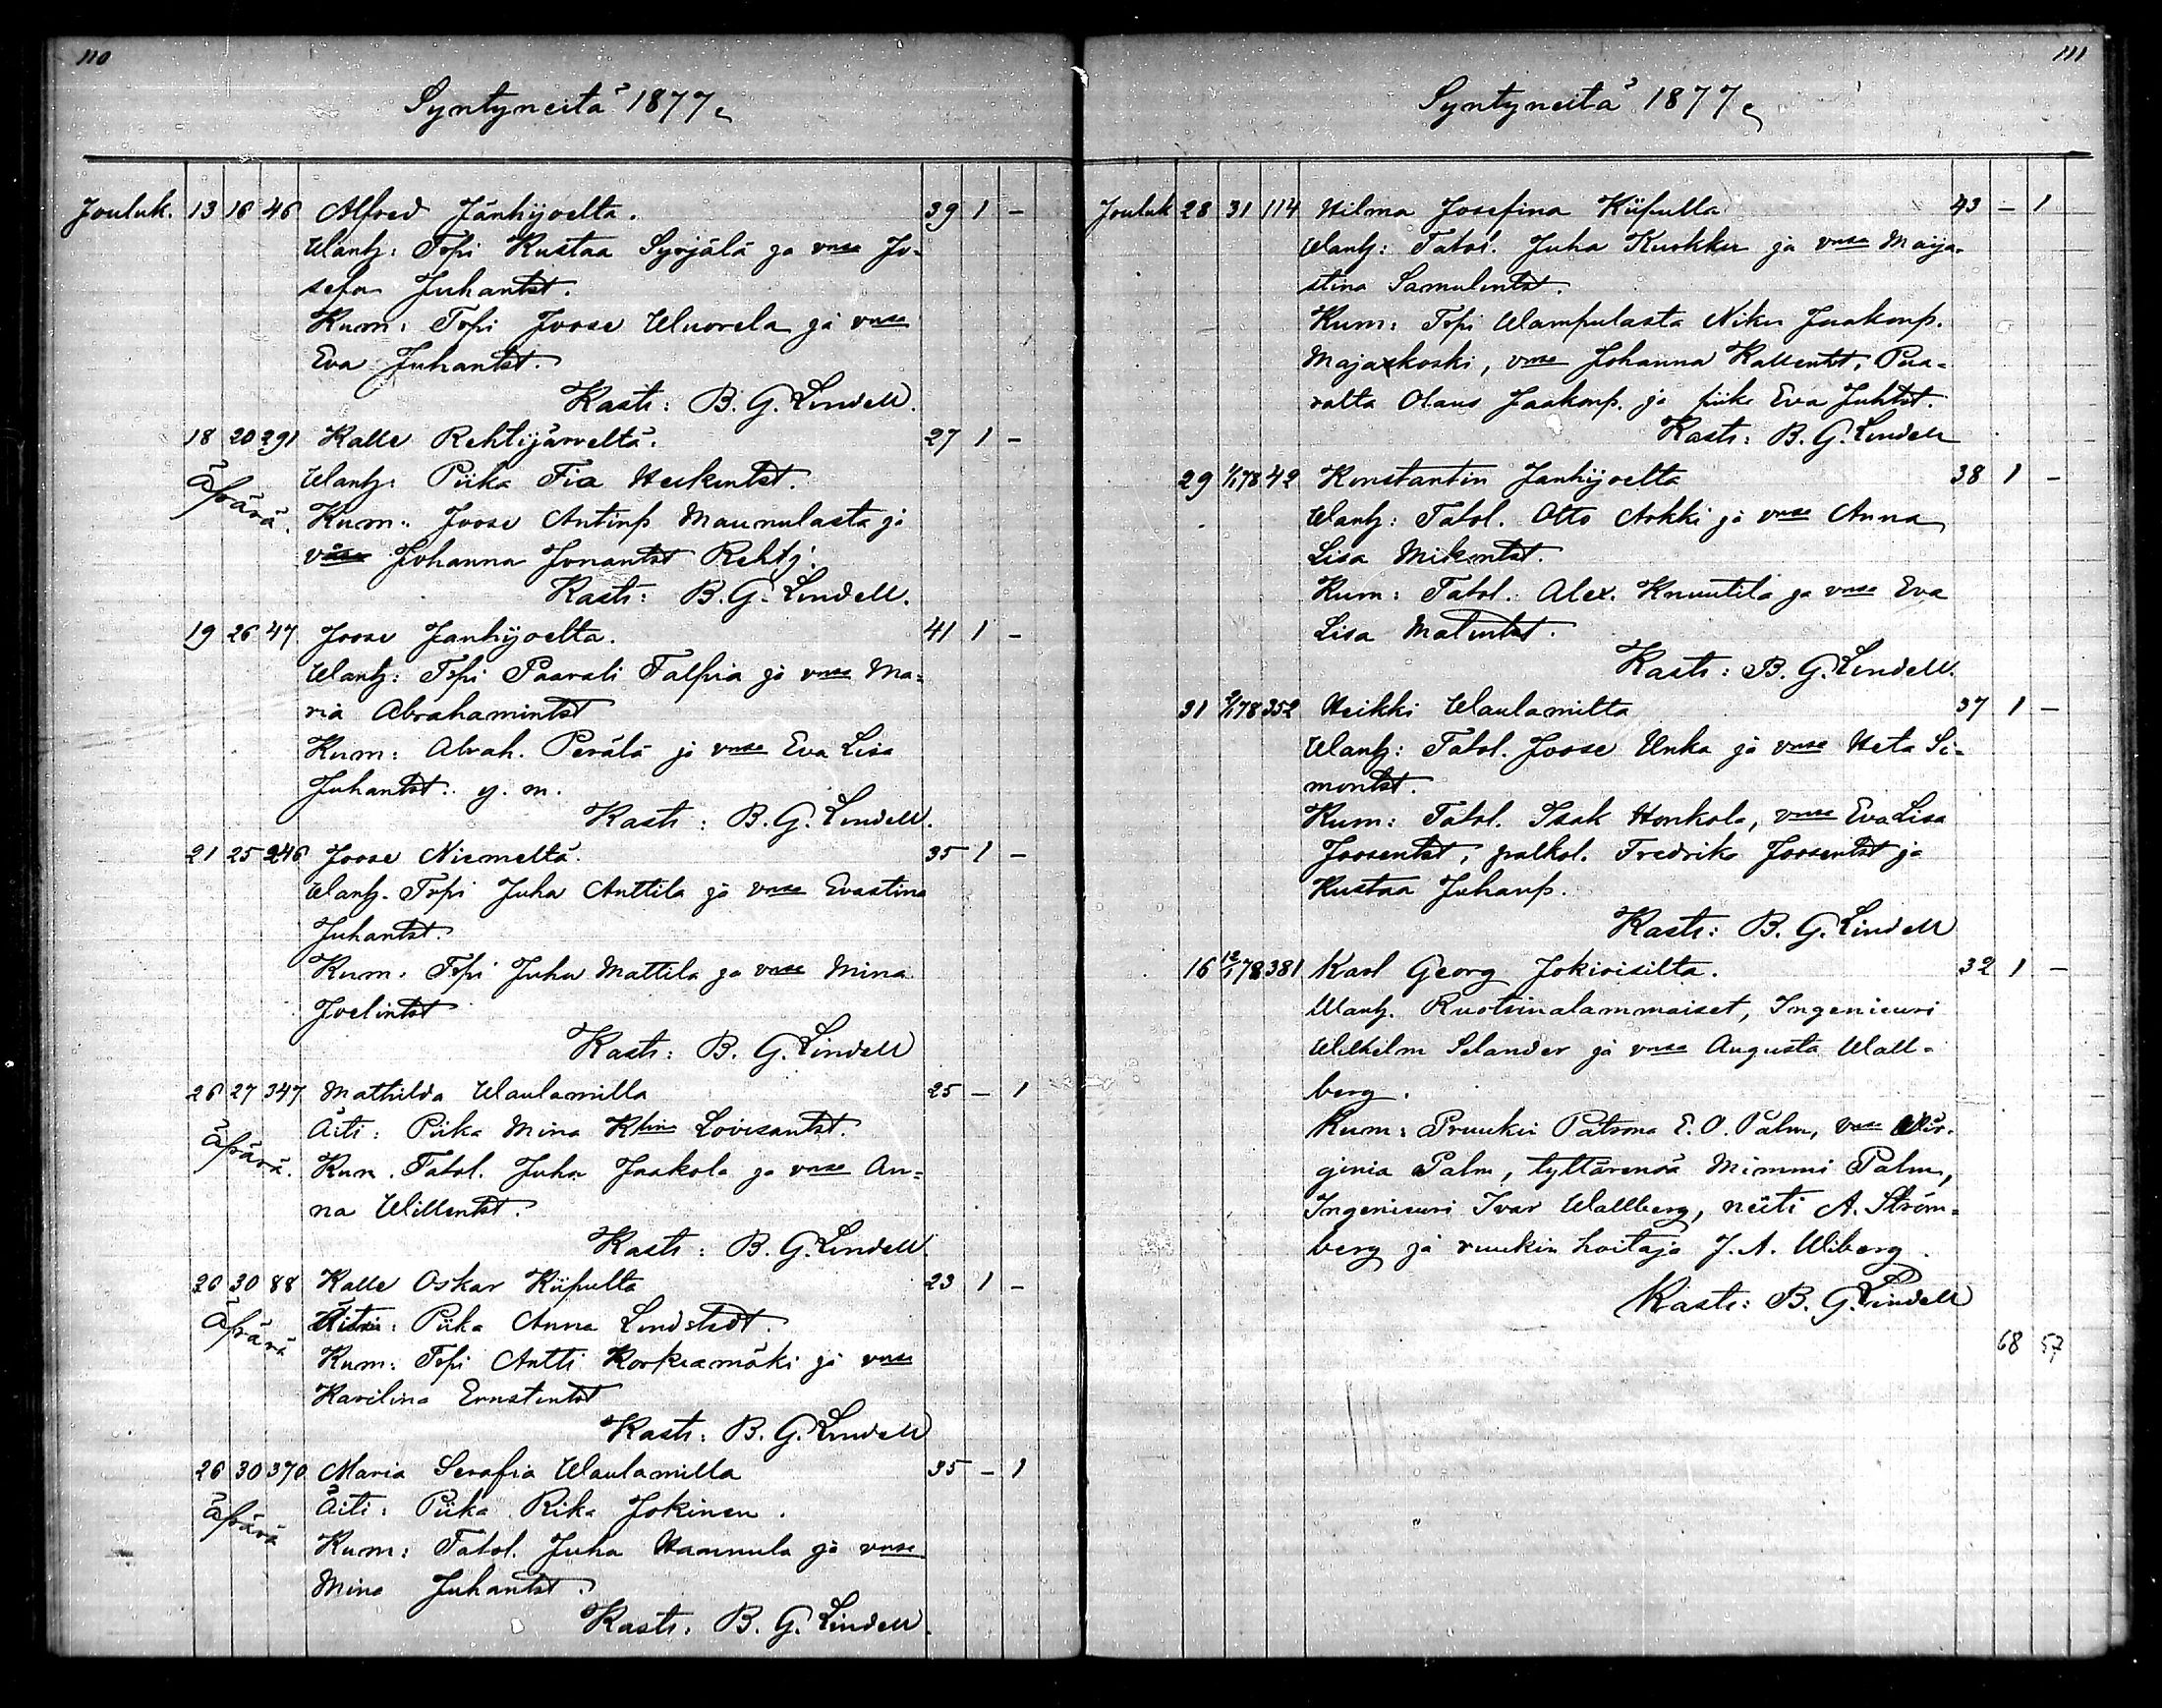 110
Syntyneitä 1877
Jouluk. 13 16 46 Alfred Jänhijoelta. 39 1 -
Wanh: Tpi Kustaa Syrjälä ja vmsa Jo-
sefa Juhantst.
Kum: Tpi Joose Wuorela ja vmsa
Eva Juhantst.
Kasti: B. G. Lindell.
18 20 291 Kalle Rehtijärveltä. 27 1 -
Äpärä. Wanh: Piika Fia Heikintst.
Kum: Joose Antinp. Maunulasta ja
vmsa Johanna Jonantst Rehtj.
Kasti: B. G. Lindell.
19 26 47 Joose Janhijoelta. 41 1 -
Wanh: Tpi Paavali Talpia ja vmsa Ma-
ria Abrahamintst
Kum: Abrah. Perälä ja vmsa Eva Lisa
Juhantst. y. m.
Kasti: B. G. Lindell.
21 25 246 Joose Niemeltä. 35 1 -
Wanh. Tpi Juha Anttila ja vmsa Evastina
Juhantst.
Kum. Tpi Juha Mattila ja vmsa Mina
Joelintst
Kasti: B. G. Lindell
26 27 347 Mathilda Waulamilla 25 - 1
Äpärä. Äiti: Piika Mina Klina Lovisantst.
Kum. Tatol. Juha Jaakola ja vmsa An-
na Willentst.
Kasti: B. G. Lindell.
26 30 88 Kalle Oskar Kiipulta 23 1 -
Äpärä Äiti: Piika Anna Lindstedt.
Kum: Tpi Antti Korkeamäki ja vmsa
Karilina Ernstintst
Kasti: B. G. Lindell
26 30 370 Maria Serafia Waulamilla 35 - 1
Äpärä Äiti: Piika Rika Jokinen.
Kum: Tatol. Juha Hannula ja vmsa
Mina Juhantst.
Kasti. B. G. Lindell.
111
Syntyneitä 1877
Jouluk 28 31 114 Hilma Josefina Kiipulla 43 - 1
Wanh: Tatol. Juha Kuokka ja vmsa Maija-
stina Samulintst.
Kum: Tpi Wampulasta Niku Jaakonp.
Majaskoski, vmsa Johanna Kallentst, Pua-
ralta Olaus Jaakonp. ja piika Eva Juhtst.
Kasti: B. G. Lindell
29 1/1 78 42 Konstantin Janhijoelta 38 1 -
Wanh: Tatol. Otto Arkki ja vmsa Anna
Lisa Mikontst.
Kum: Tatol. Alex. Knuutila ja vmsa Eva
Lisa Matintst.
Kasti: B. G. Lindell.
31 2/1 78 352 Heikki Waulamilta 37 1 -
Wanh: Tatol. Joose Unka ja vmsa Heta Si-
montst.
Kum: Tatol. Isak Honkola, vmsa Eva Lisa
Joosentst, palkol. Fredrika Joosentst ja
Kustaa Juhanp.
Kasti: B. G. Lindell
16 12/1 78 381 Karl Georg Jokioisilta. 32 1 -
Wanh. Ruotsinalammaiset, Ingenieuri
Wilhelm Selander ja vmsa Augusta Wall-
berg.
Kum: Pruukin Patrona E. O. Palm, vmsa Wir-
ginia Palm, tyttärensä Mimmi Palm,
Ingenieuri Ivar Wallberg, neiti A. Ström-
berg ja ruukin hoitaja J. A. Wiberg.
Kasti: B. G. Lindell
68 57